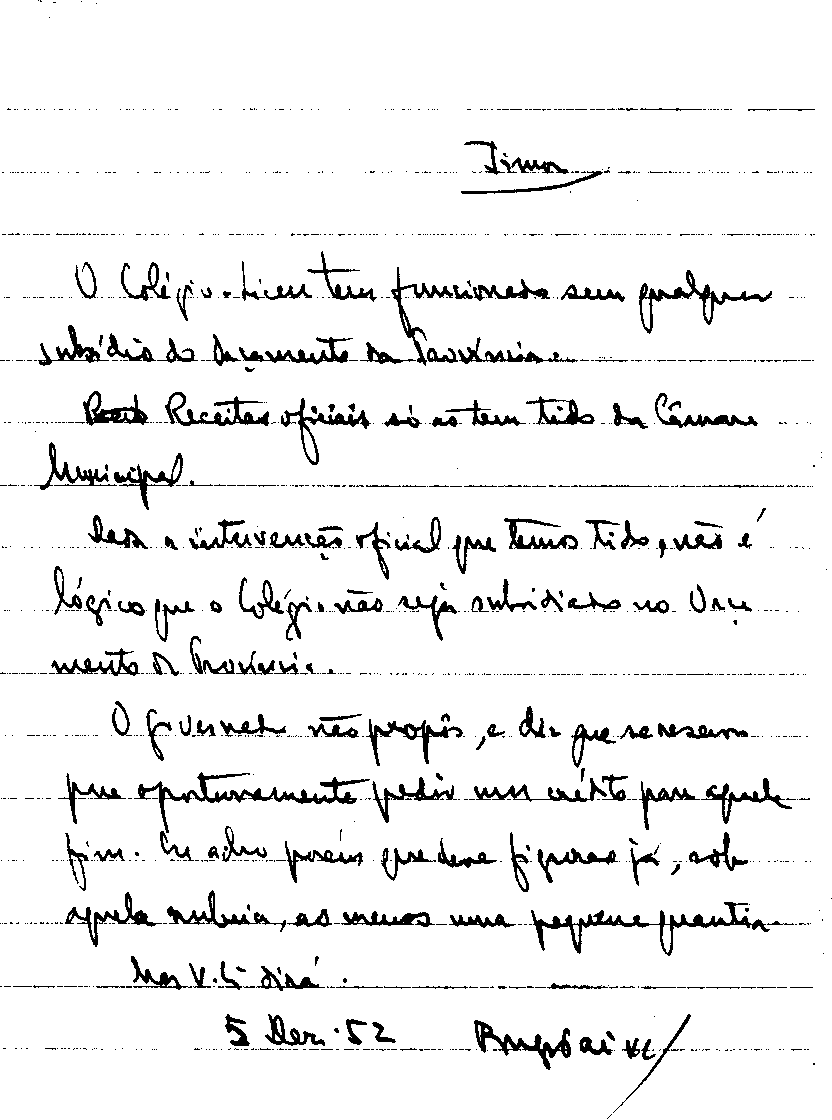 Timor
O Colégio-Liceu tem funcionado sem qualquer
subsídio do Orçamento da Província.
Receitas oficiais só as tem tido da Câmara
Municipal.
Dada a intervenção oficial que temos tido, não é
lógico que o Colégio não seja subsidiado no Orça
mento da Província.
O governador não propôs, e diz que se reserva
para oportunamente pedir um crédito para aquele
fim. Eu acho porém que deve figurar já, sob
aquela rubrica, ao menos uma pequena quantia.
Mas V. Exª dirá.
5 Dez. 52